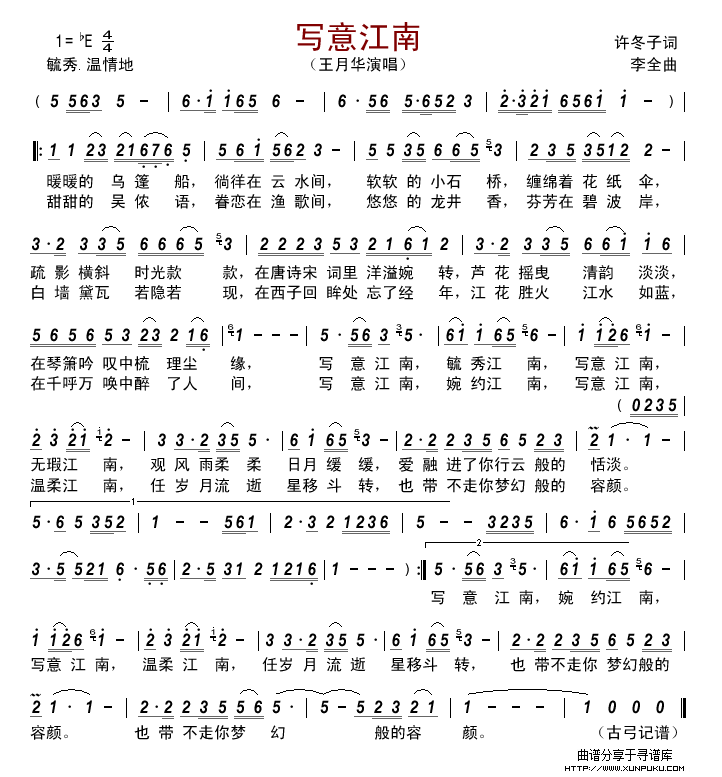 写意江南
1= ♭E 4/4
许冬子词
毓秀.温情地
（王月华演唱）
李全曲
( 5 563 5 - | 6·1 165 6 - | 6·56 5·652 3 | 2·321 6561 1 - ) |
|: 1 1 23 21676 5 | 561 562 3 - | 55 35 665 53 | 235 3512 2 - |
暖暖的 乌 篷 船， 徜徉在 云 水间， 软软 的 小石 桥， 缠绵着 花 纸 伞，
甜甜的 吴 侬 语， 眷恋在 渔 歌间， 悠悠 的 龙井 香， 芬芳在 碧 波 岸，
3·2 335 6665 53 | 2223 535 2161 2 | 3·2 335 661 16 |
疏 影 横斜 时光款 款，在唐诗宋 词里 洋溢婉 转，芦 花 摇曳 清韵 淡淡，
白 墙 黛瓦 若隐若 现，在西子回 眸处 忘了经 年，江 花 胜火 江水 如蓝，
5656 535 23 216 | 61 - - - | 5·56 3 35· | 61 165 56 - | 1 126 61 - |
在琴箫吟 叹中梳 理尘 缘， 写 意 江 南， 毓 秀江 南， 写意 江 南，
在千呼万 唤中醉 了人 间， 写 意 江 南， 婉 约江 南， 写意 江 南，
( 0235 |
2 3 21 12 - | 33·2 35 5· | 61 65 53 - | 2·2 235 65 23 | 2 1· 1 - |
无瑕江 南， 观 风 雨柔 柔 日月 缓 缓， 爱 融 进了你行云 般的 恬淡。
温柔江 南， 任 岁 月流 逝 星移 斗 转， 也 带 不走你梦幻 般的 容颜。
1
5·6 5 352 | 1 - - 561 | 2·3 2 1236 | 5 - - 3235 | 6·1 6 5652 |
3·5 5216·56 | 2·5 312 1216 | 1 - - - ) :|
2
5·56 3 35· | 61 165 56 - |
写 意 江 南， 婉 约江 南，
1 126 61 - | 23 21 12 - | 33·2 35 5· | 61 65 53 - | 2·2 235 65 23 |
写意 江 南， 温柔 江 南， 任岁 月 流 逝 星移斗 转， 也 带不走你 梦幻般的
2 1· 1 - | 2·2 235 56 5· | 5 - 5 23 | 1 - - - | 1 0 0 0 ||
容颜。 也 带 不走你梦 幻 般的容 颜。 （古弓记谱）
曲谱分享于寻谱库
HTTP://WWW.XUNPUKU.COM